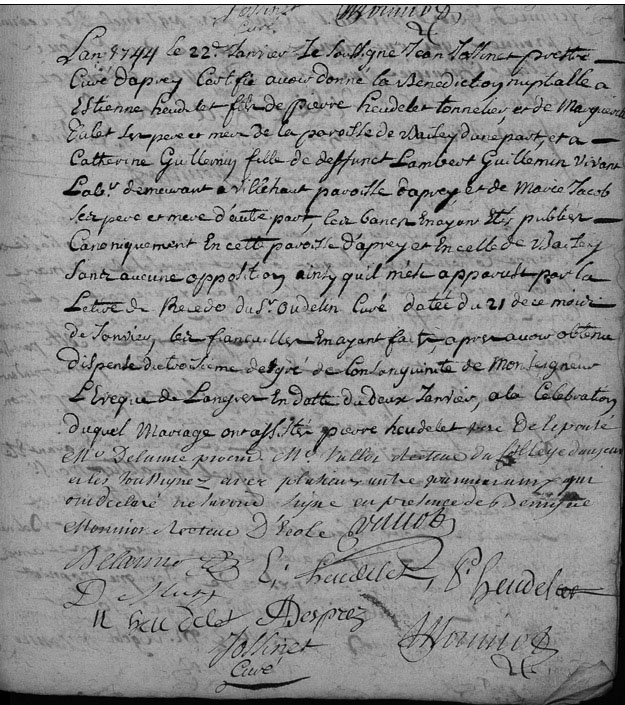 Jassinet Monniot
Curé
Lan 1744 le 22e Janvier Je Soussigné Jean Jassinet prestre
Curé daprey Certifie avoir donné la Benediction nuptialle a
Estienne heudelet fils de pierre heudelet tonnelier et de Marguerite
ses pere et mere de la paroisse de Baissey dune part, et a
Catherine Guillemin fille de deffunct Lambert Guillemin vivant
Labr. demeurant a villehaut paroisse daprey et de Marie Jacob
ses pere et mere d'autre part, les bancs En ayant Etés publiez
Canoniquement En cette paroisse d'aprey et En celle de Baissey
Sans aucune opposition ainsy quil m'est apparust par la
Lettre de Recedo du Sr. Oudelin Curé datée du 21 de ce mois
de Janvier les fiancailles En ayant faits, apres avoir obtenu
dispense du troisieme degré de Consanguinité de Monseigneur
L'Eveque de Langres En datte du deux Janvier, a la Celebration
duquel Mariage ont assistés pierre heudelet pere de lepouse
Me Delanne Me vallot du College
et les Soussignez avec plusieurs autre qui
ont declaré ne savoir signe en presence de
Monniot Recteur D'Ecole vallot
Delanne E heudelet, P heudelet
D
N heudelet Desprez
Jassinet Monniot
Curé